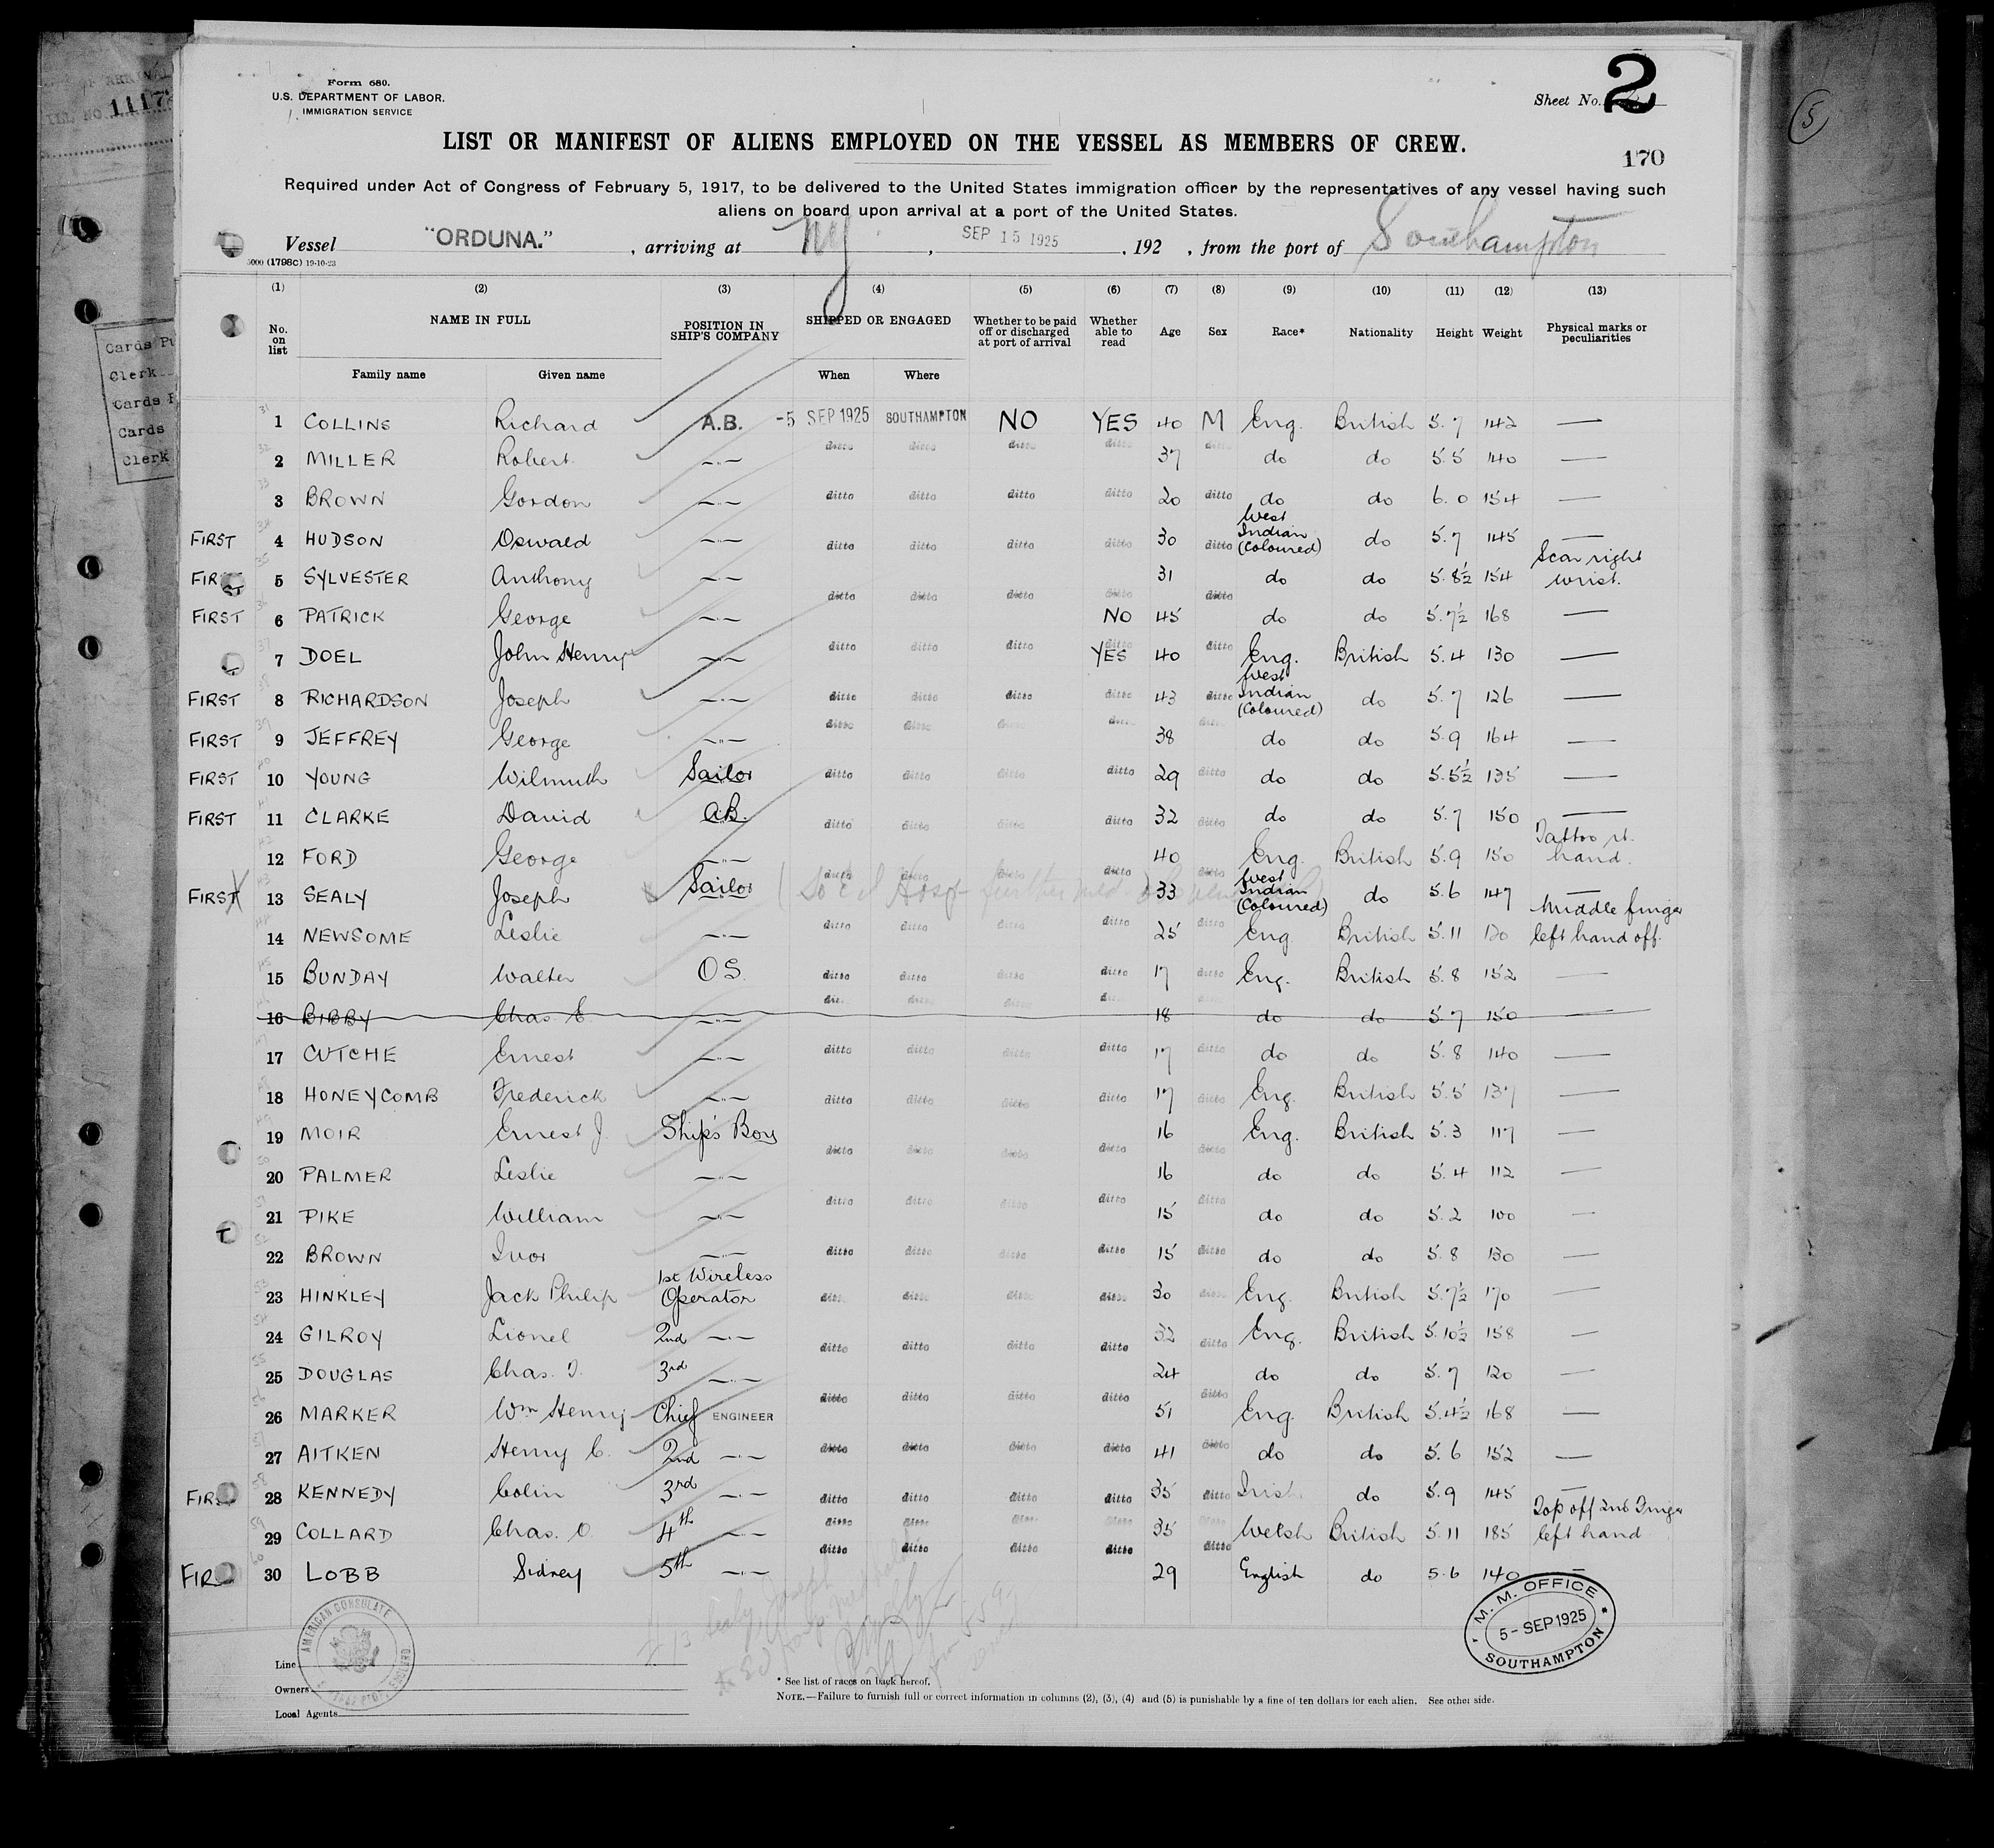 Form 680.
U.S. DEPARTMENT OF LABOR.
IMMIGRATION SERVICE
Sheet No. 2
LIST OR MANIFEST OF ALIENS EMPLOYED ON THE VESSEL AS MEMBERS OF CREW.
170
Required under Act of Congress of February 5, 1917, to be delivered to the United States immigration officer by the representatives of any vessel having such
aliens on board upon arrival at a port of the United States.
Vessel "ORDUNA." , arriving at NY , SEP 15 1925 , 192 , from the port of Southampton
5000 (1798C) 19-10-23
(1) (2) (3) (4) (5) (6) (7) (8) (9) (10) (11) (12) (13)
No. on list NAME IN FULL POSITION IN SHIP'S COMPANY SHIPPED OR ENGAGED Whether to be paid off or discharged at port of arrival Whether able to read Age Sex Race* Nationality Height Weight Physical marks or peculiarities
Family name Given name When Where
1 COLLINS Richard A.B. -5 SEP 1925 SOUTHAMPTON NO YES 40 M Eng. British 5.7 142 —
2 MILLER Robert —"— ditto ditto ditto ditto 37 ditto do do 5.5 140 —
3 BROWN Gordon —"— ditto ditto ditto ditto 20 ditto do do 6.0 154 —
FIRST 4 HUDSON Oswald —"— ditto ditto ditto ditto 30 ditto West Indian (Coloured) do 5.7 145 —
FIRST 5 SYLVESTER Anthony —"— ditto ditto ditto ditto 31 ditto do do 5.8½ 154 Scar right wrist.
FIRST 6 PATRICK George —"— NO 45 do do 5.7½ 168 —
7 DOEL John Henry —"— ditto ditto ditto YES 40 ditto Eng. British 5.4 130 —
FIRST 8 RICHARDSON Joseph —"— ditto ditto ditto ditto 43 ditto West Indian (Coloured) do 5.7 126 —
FIRST 9 JEFFREY George —"— ditto ditto ditto ditto 38 ditto do do 5.9 164 —
FIRST 10 YOUNG Wilmuth Sailor ditto ditto ditto ditto 29 ditto do do 5.5½ 135 —
FIRST 11 CLARKE David A.B. ditto ditto ditto ditto 32 ditto do do 5.7 150 —
12 FORD George —"— ditto ditto ditto ditto 40 ditto Eng. British 5.9 150 Tattoo rt. hand.
FIRST X 13 SEALY Joseph Sailor 33 West Indian (Coloured) do 5.6 147 —
14 NEWSOME Leslie —"— ditto ditto ditto ditto 25 ditto Eng. British 5.11 130 Middle finger left hand off.
15 BUNDAY Walter O.S. ditto ditto ditto ditto 17 ditto Eng. British 5.8 152 —
16 BIBBY Chas. E. —"— ditto ditto ditto ditto 18 ditto do do 5.7 150 —
17 CUTCHE Ernest —"— ditto ditto ditto ditto 17 ditto do do 5.8 140 —
18 HONEYCOMB Frederick —"— ditto ditto ditto ditto 17 ditto Eng. British 5.5 137 —
19 MOIR Ernest J. Ship's Boy ditto ditto ditto ditto 16 ditto Eng. British 5.3 117 —
20 PALMER Leslie —"— 16 do do 5.4 112 —
21 PIKE William —"— ditto ditto ditto ditto 15 ditto do do 5.2 100 —
22 BROWN Ivor —"— ditto ditto ditto ditto 15 ditto do do 5.8 130 —
23 HINKLEY Jack Philip 1st Wireless Operator ditto ditto ditto ditto 30 ditto Eng. British 5.7½ 170 —
24 GILROY Lionel 2nd —"— ditto ditto ditto ditto 32 ditto Eng. British 5.10½ 158 —
25 DOUGLAS Chas. 3rd —"— 24 do do 5.7 120 —
26 MARKER Wm Henry Chief ENGINEER ditto ditto ditto ditto 51 ditto Eng. British 5.4½ 168 —
27 AITKEN Henry C. 2nd —"— ditto ditto ditto ditto 41 ditto do do 5.6 152 —
FIRST 28 KENNEDY Colin 3rd —"— ditto ditto ditto ditto 35 ditto Irish do 5.9 145 —
29 COLLARD Chas. O. 4th —"— ditto ditto ditto ditto 35 ditto Welsh British 5.11 185 Top off 2nd finger left hand
FIRST 30 LOBB Sidney 5th —"— ditto ditto ditto ditto 29 ditto English do 5.6 140 —
AMERICAN CONSULATE
M. M. OFFICE
5-SEP 1925
SOUTHAMPTON
Line
Owners
Local Agents
* See list of races on back hereof.
NOTE.—Failure to furnish full or correct information in columns (2), (3), (4) and (5) is punishable by a fine of ten dollars for each alien. See other side.
1117
Cards
Clerk
Cards
Cards
Clerk
5